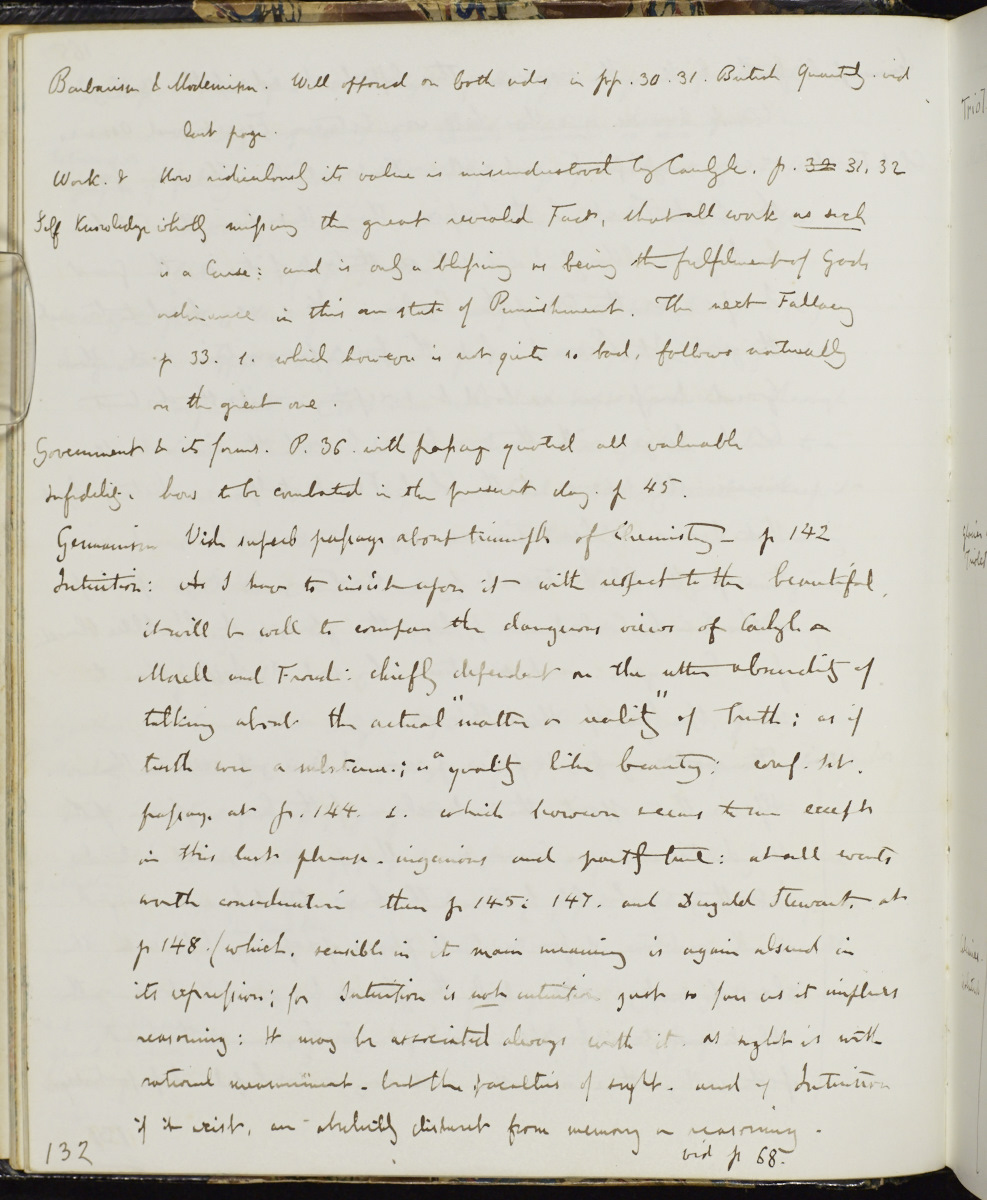 Barbarism & Modernism. Well opposed on both sides in pp. 30. 31. British Quarterly. vid
last page.
Work. & How ridiculously its value is misunderstood by Carlyle. p. 32 31, 32
Self Knowledge wholly missing the great revealed Fact, that all work as such
is a Curse: and is only a blessing as being the fulfilment of Gods
ordinance in this our state of Punishment. The next Fallacy
p 33. 1. which however is not quite so bad, follows naturally
on the great one.
Government & its forms. P. 36. with passage quoted all valuable
Infidelity. how to be combated in the present day. p 45.
Germanism Vide superb passage about triumphs of Chemistry - p 142
Intuition: As I have to insist upon it with respect to the beautiful,
it will be well to compare the dangerous views of Carlyle
Morell and Froude: chiefly dependent on the utter absurdity of
talking about the actual "matter or reality" of Truth; as if
truth were a substance; or a quality like beauty:
passage at p. 144. 1. which however seems to me except
in this last phrase. ingenious and partly true: at all events
worth consideration then p 145: 147. and Dugald Stewart. at
p 148. (which, sensible in it main meaning is again absurd in
its expression; for Intuition is not intuition just so far as it implies
reasoning: It may be associated always with it. as sight is with
rational measurement. but the faculties of sight. and of Intuition
if it exist, are absolutely distinct from memory or reasoning.
vid p 68.
132